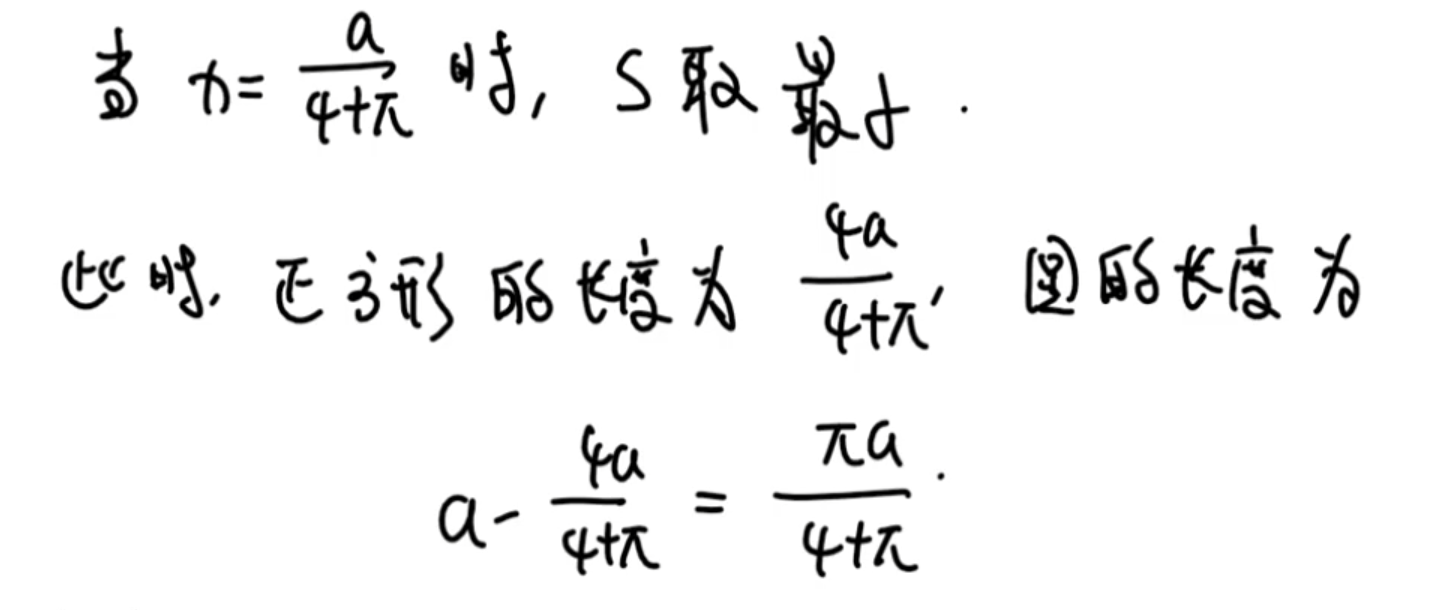 当 x = \frac{a}{4+π} 时, S 取最小.
此时, 正方形的长度为 \frac{4a}{4+π}, 圆的长度为
a - \frac{4a}{4+π} = \frac{πa}{4+π}.